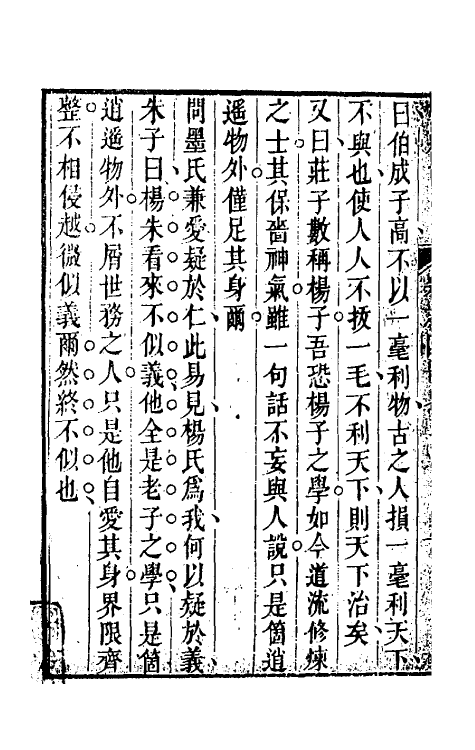 曰伯成子高不以一毫利物古之人損一毫利天下
不與也使人人不拔一毛不利天下則天下治矣
又曰莊子數稱楊子吾恐楊子之學如今道流修煉
之士其保嗇神氣雖一句話不妄與人說只是箇逍
遥物外僅足其身爾
問墨氏兼愛疑於仁此易見楊氏爲我何以疑於義
朱子曰楊朱看來不似義他全是老子之學只是箇
逍遥物外不屑世務之人只是他自愛其身界限齊
整不相侵越微似義爾然終不似也